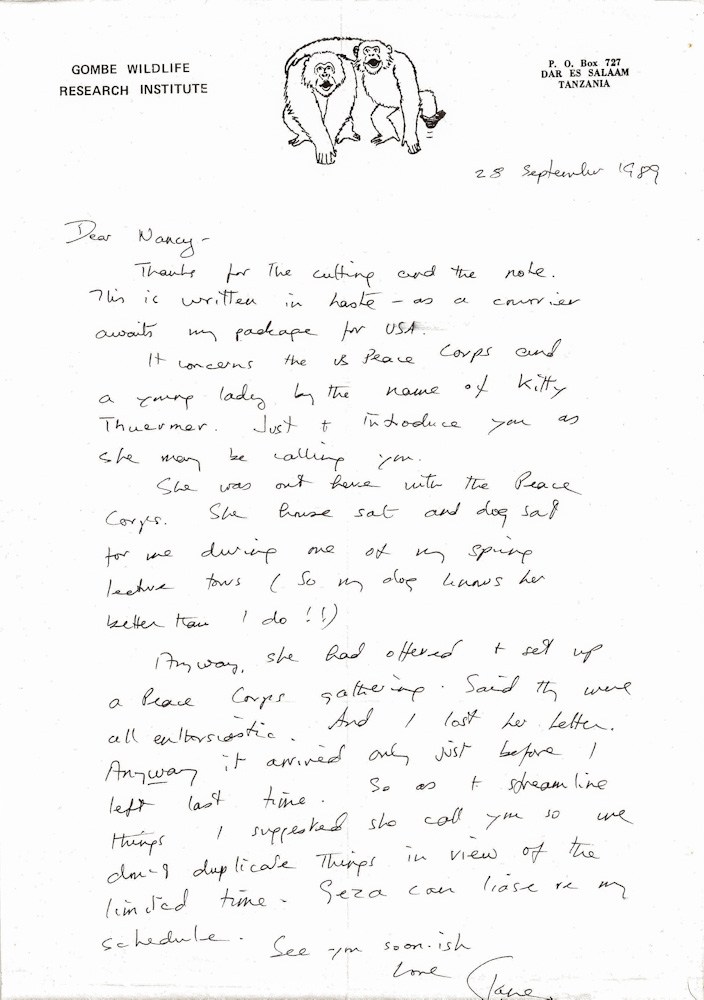 GOMBE WILDLIFE
RESEARCH INSTITUTE
P. O. Box 727
DAR ES SALAAM
TANZANIA
28 September 1989
Dear Nancy -
Thanks for the cutting and the note.
This is written in haste - as a courier
awaits my package for USA.
It concerns the US Peace Corps and
a young lady by the name of Kitty
Thuermer. Just t introduce you as
she may be calling you.
She was out here with the Peace
Corps. She house sat and dog sat
for me during one of my spring
lecture tours (So my dog knows her
better than I do !!)
Anyway, she had offered t set up
a Peace Corps gathering. Said they were
all enthusiastic. And I lost her letter.
Anyway it arrived only just before I
left last time. So as t streamline
things I suggested she call you so we
don't duplicate things in view of the
limited time. Geza can liase re my
schedule.
See you soon-ish
Love
Jane